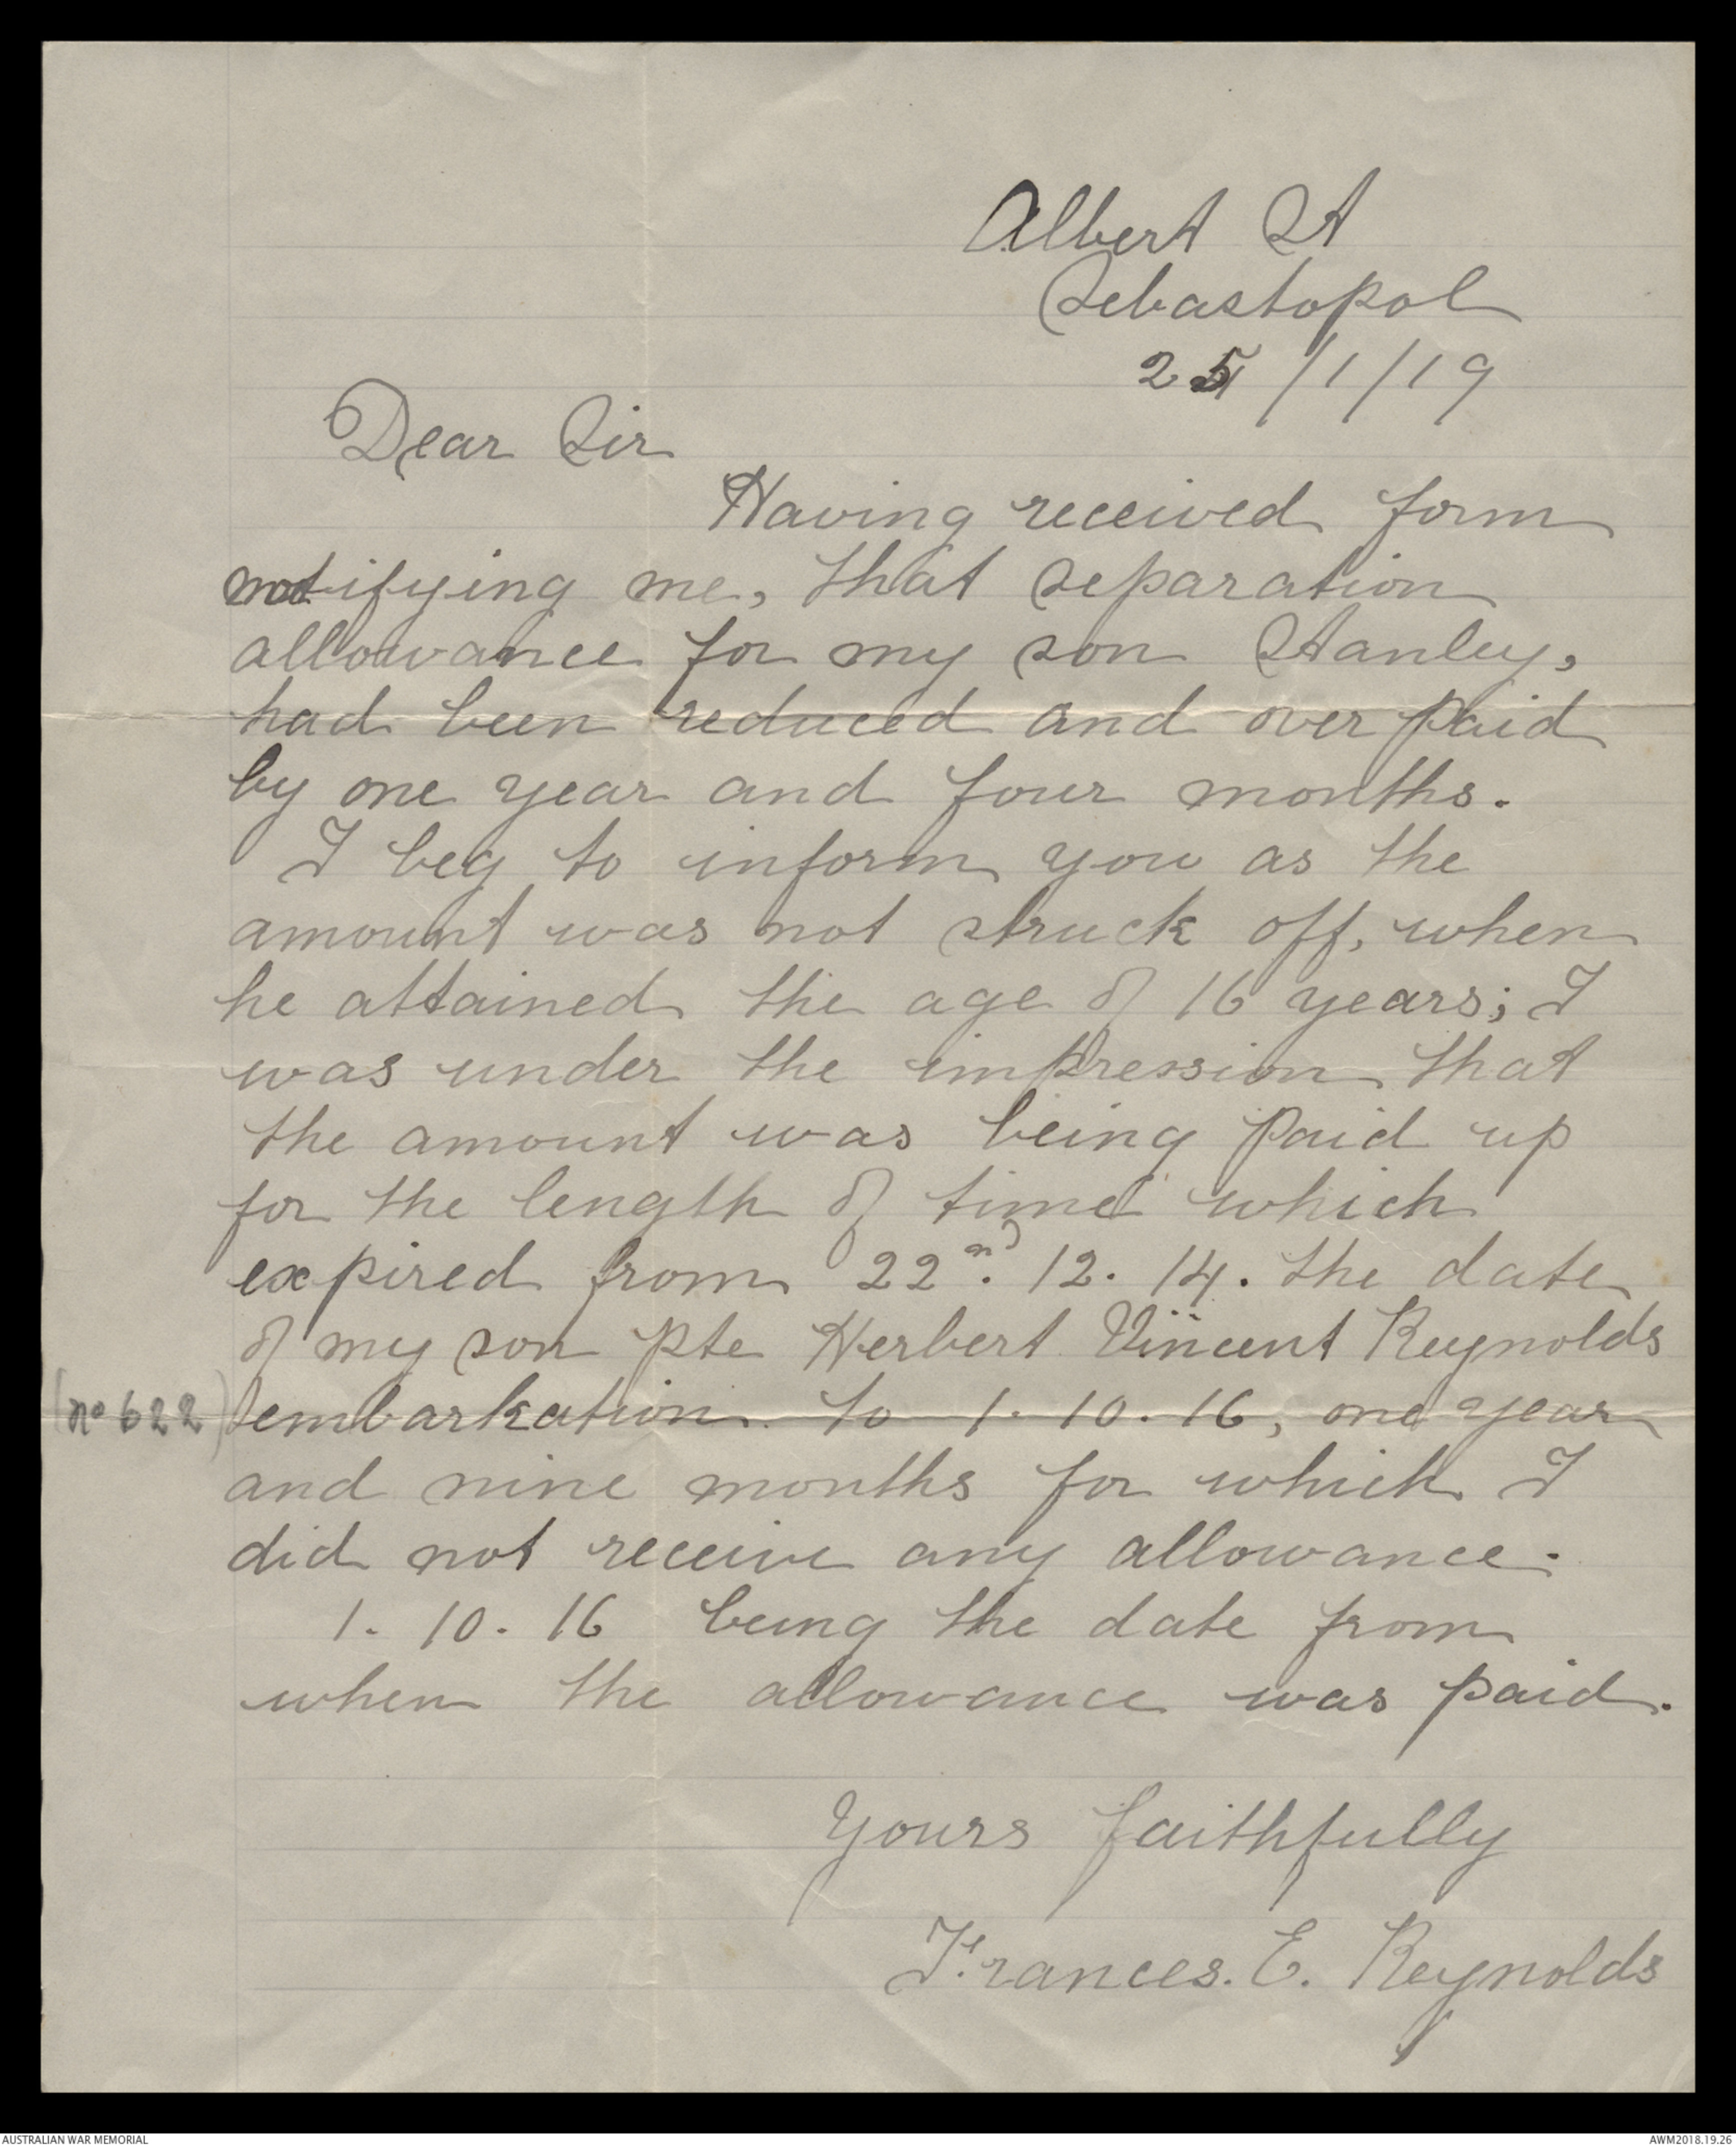 Albert St
Sebastopol
25/1/19
Dear Sir
Having received form
notifying me, that separation
allowance for my son Stanley,
had been reduced and over paid
by one year and four months.
I beg to inform you as the
amount was not struck off, when
he attained the age of 16 years; I
was under the impression that
the amount was being paid up
for the length of time which
expired from 22nd. 12. 14. the date
of my son Pte Herbert Vincent Reynolds
(No 622) embarkation. to 1. 10. 16, one year
and nine months for which I
did not receive any allowance.
1. 10. 16 being the date from
when the allowance was paid.
Yours faithfully
Frances. E. Reynolds
AUSTRALIAN WAR MEMORIAL
AWM2018.19.26